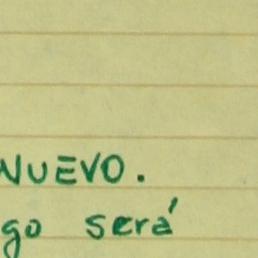 NUEVO.
go será